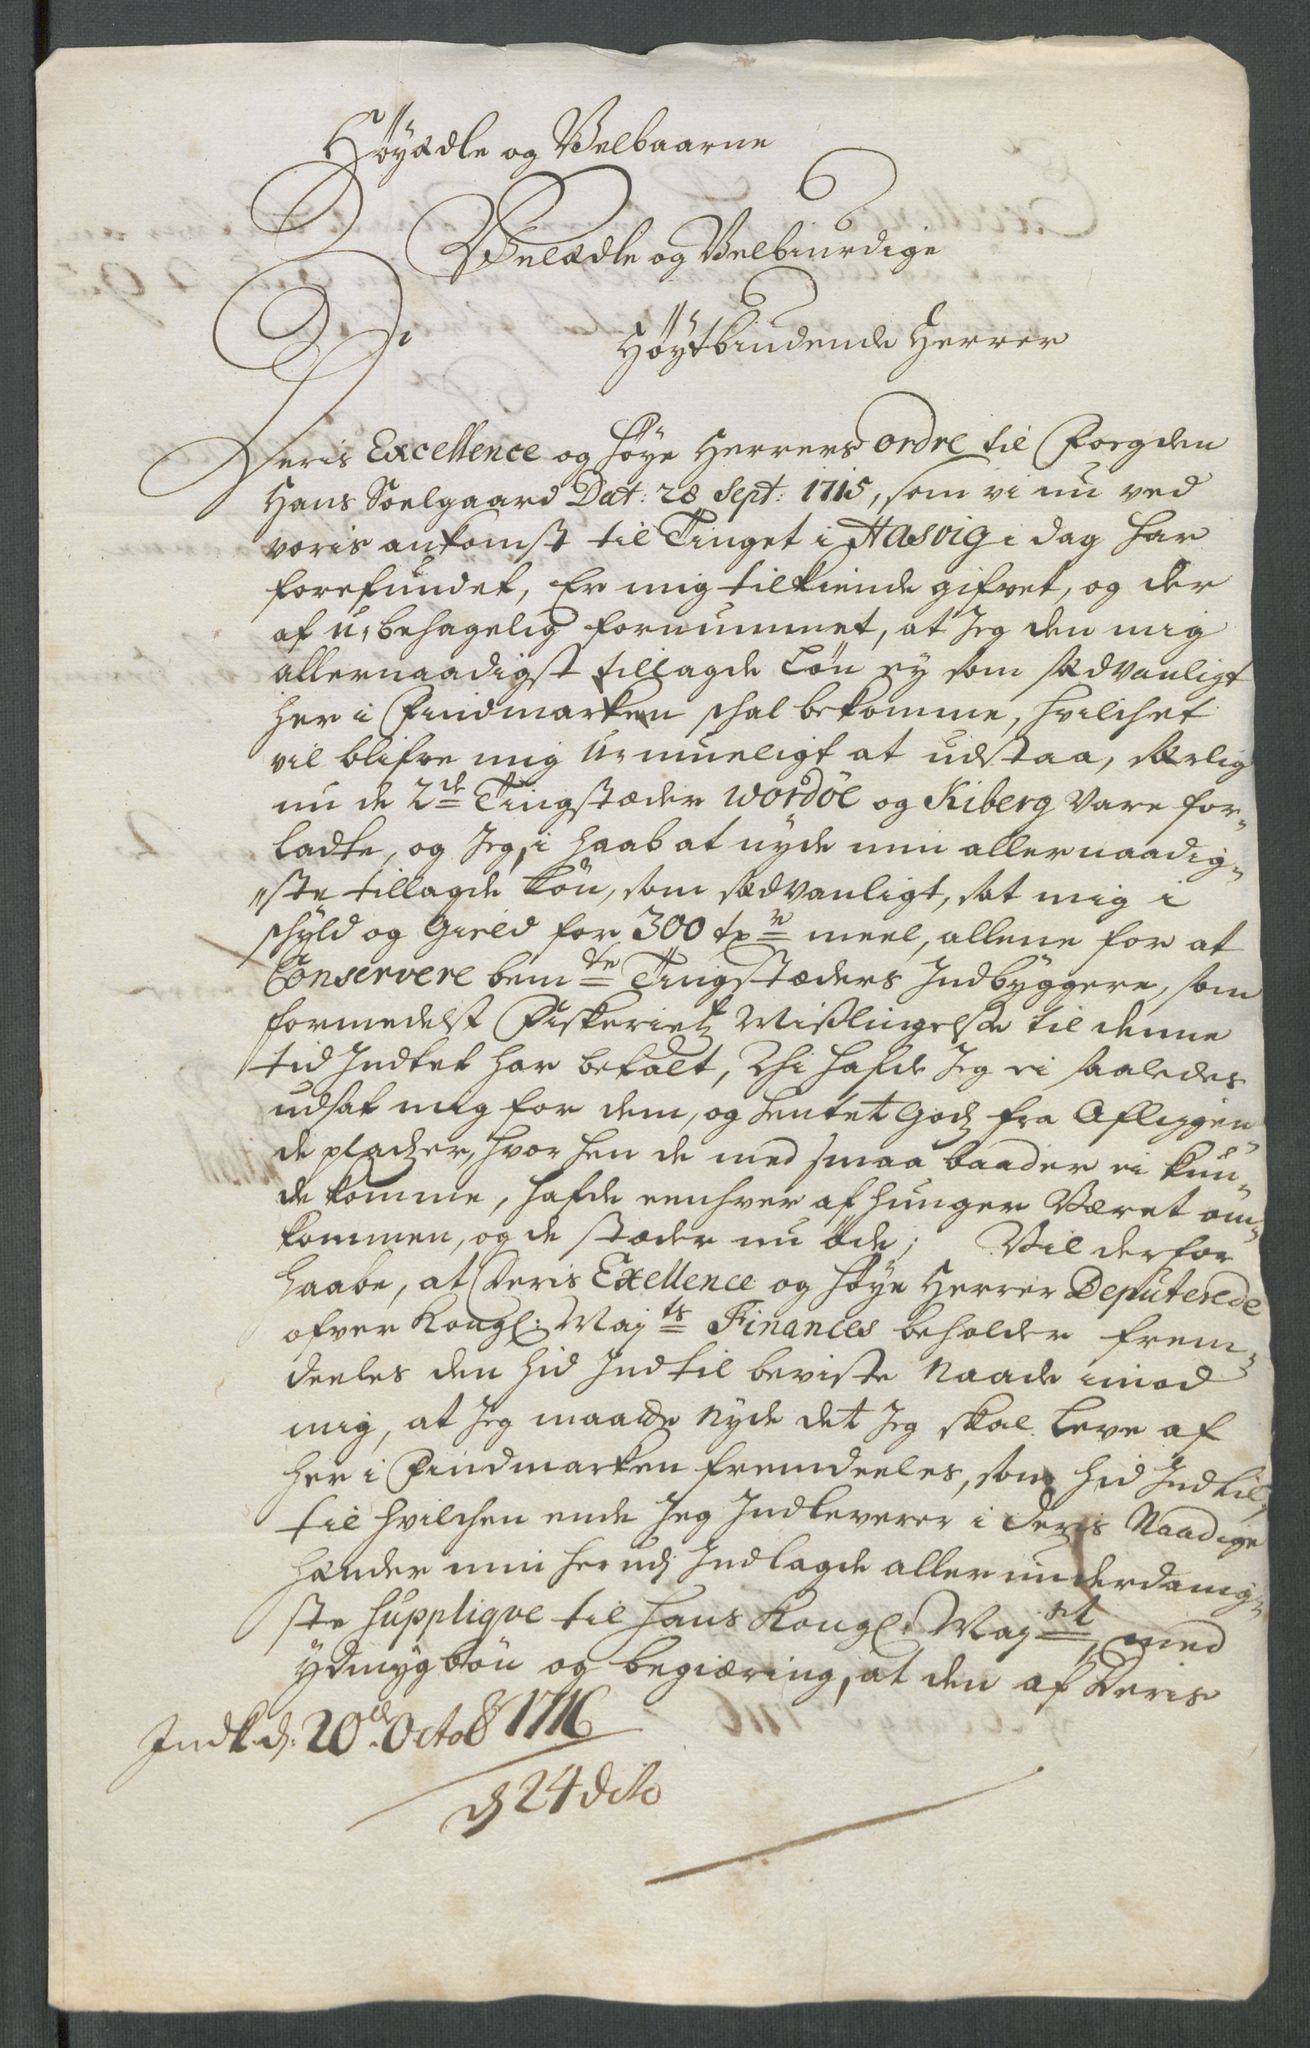 Höyædle og Velbaarne
Velædle og Velbiurdige
Höytbiudende Herrer
Deris Excellence og Höye Herrers ordre til Foegden
Hans Soelgaard Dat: 28 Sept: 1715, som vi nu ved
voris ankomst til Tinget i Hasvig i dag har
forefundet, Er mig tilkiende gifvet, og der
af u-behagelig fornummet, at Jeg den mig
allernaadigst tillagde Løn ey som sædvanligt
her i Findmarken schal bekomme, hvilchet
vil blifve mig u-mueligt at udstaa, særlig
nu de 2de Tingstæder Wordöe og Kiberg vare for-
ladte, og Jeg, i haab at nyde min allernaadig-
ste tillagde Løn, som sædvanligt, sat mig i
schyld og Gield for 300 meel, allene for at
Conservere bemte Tingstæders Indbyggere, som
formedelst Fiskeriets Misslingelse til denne
tid Indtet har betalt, Thi hafde Jeg ei saaledes
udsat mig for dem, og hentet Godz fra Afliggen-
de pladzer, hvor hen de med smaa baader ei kun-
de komme, hafde eenhver af hunger været om-
kommen, og de stæder nu öde; Vil derfor
haabe, at Deris Exellence og Höye Herrer Deputerede
ofver Kongl: Mayts Finances beholder frem-
deeles den hid Indtil beviste Naade imod
mig, at Jeg maatte nyde det Jeg skal leve af
her i Findmarken fremdeeles, som hid Indtil,
til hvilchen ende Jeg Indleverer i Deris Naadige
hænder min herudj Indlagde allerunderdanig-
ste Supplique til Hans Kongl: Mayst, med
ydmyg bön og begiæring, at den af Deris
Indk. d: 20de Octob 1716
d 24 dito